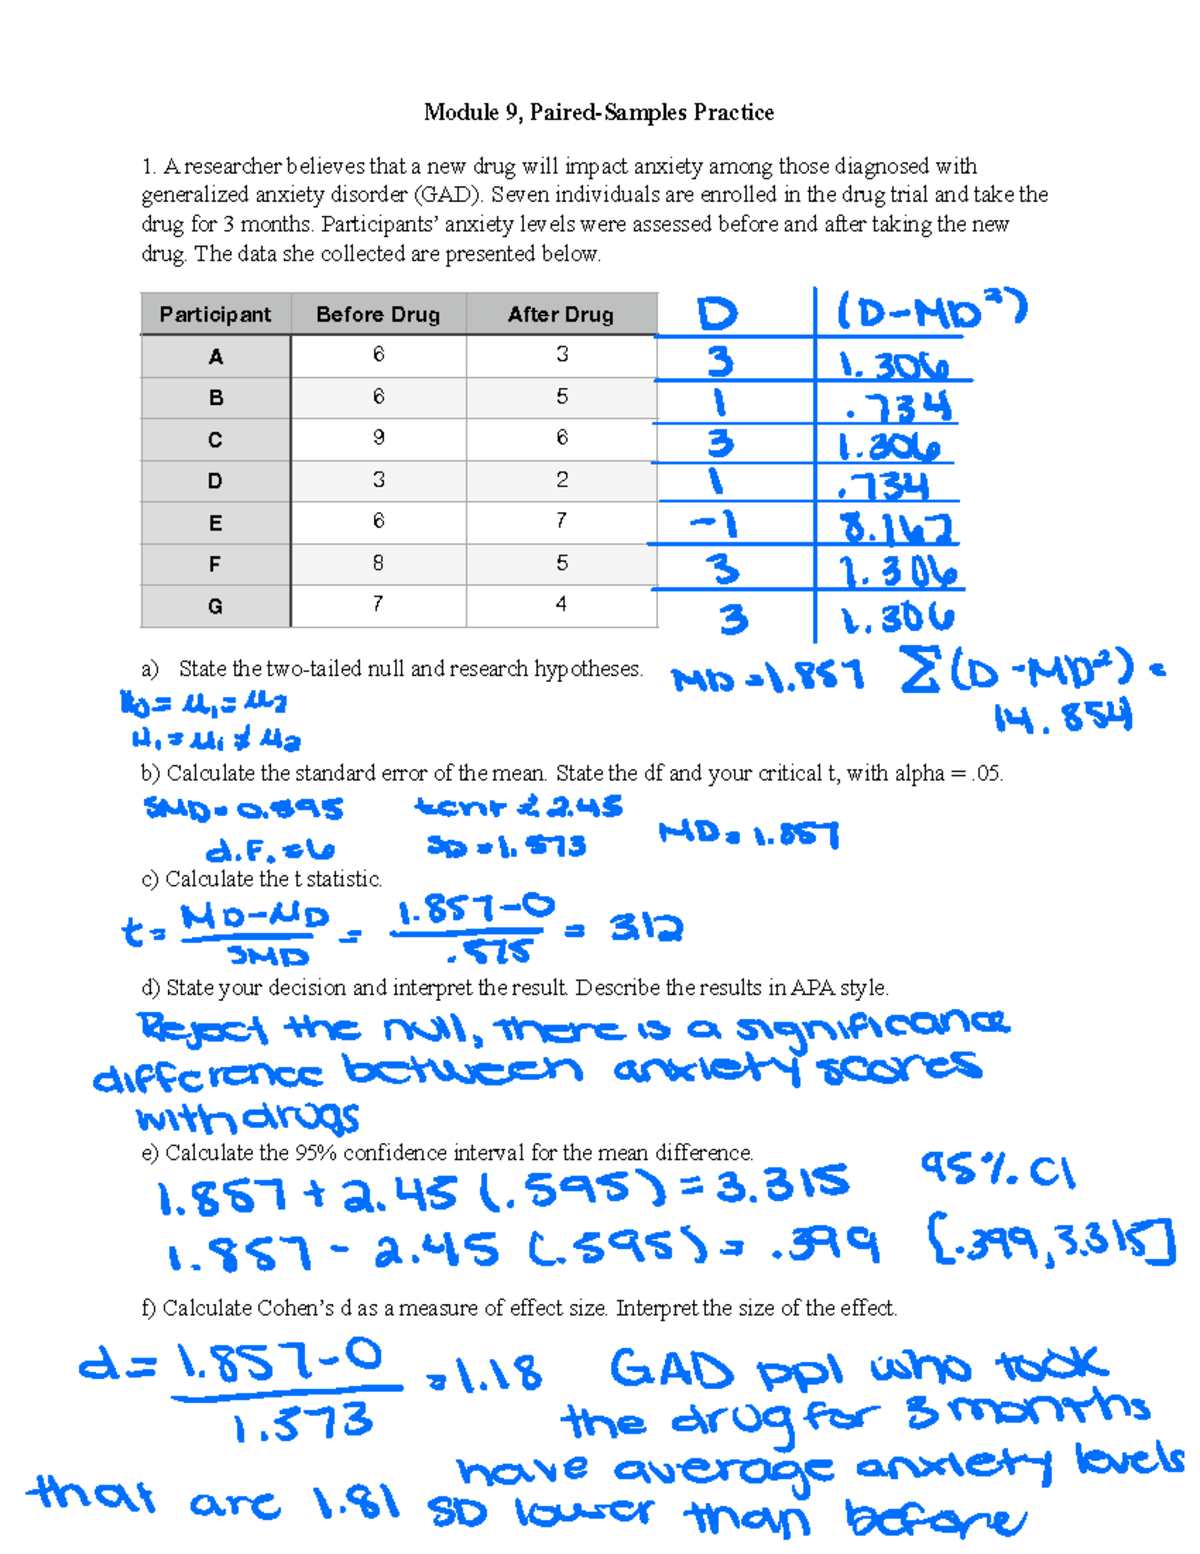 Module 9, Paired-Samples Practice
1. A researcher believes that a new drug will impact anxiety among those diagnosed with
generalized anxiety disorder (GAD). Seven individuals are enrolled in the drug trial and take the
drug for 3 months. Participants’ anxiety levels were assessed before and after taking the new
drug. The data she collected are presented below.
Participant Before Drug After Drug D (D-MD²)
A 6 3 3 1.306
B 6 5 1 .734
C 9 6 3 1.306
D 3 2 1 .734
E 6 7 -1 8.162
F 8 5 3 1.306
G 7 4 3 1.306
a) State the two-tailed null and research hypotheses. MD=1.857 Σ(D-MD²)=
14.854
H0=μ1=μ2
H1=μ1≠μ2
b) Calculate the standard error of the mean. State the df and your critical t, with alpha = .05.
SMD=0.595 tcrit ± 2.45
d.F.=6 SD=1.573 MD=1.857
c) Calculate the t statistic.
t= MD-μD = 1.857-0 = 3.12
SMD .575
d) State your decision and interpret the result. Describe the results in APA style.
Reject the null, there is a significance
difference between anxiety scores
with drugs
e) Calculate the 95% confidence interval for the mean difference.
1.857+2.45(.595)=3.315 95% CI
1.857-2.45(.595)=.399 [.399,3.315]
f) Calculate Cohen’s d as a measure of effect size. Interpret the size of the effect.
d= 1.857-0 =1.18 GAD ppl who took
1.573 the drug for 3 months
have average anxiety levels
that are 1.81 SD lower than before